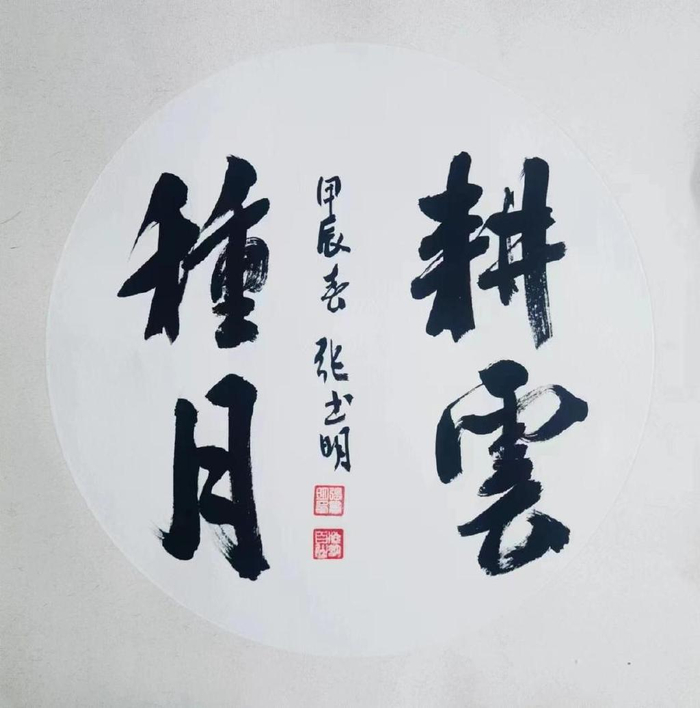 耕雲
種月
甲辰春 张书明